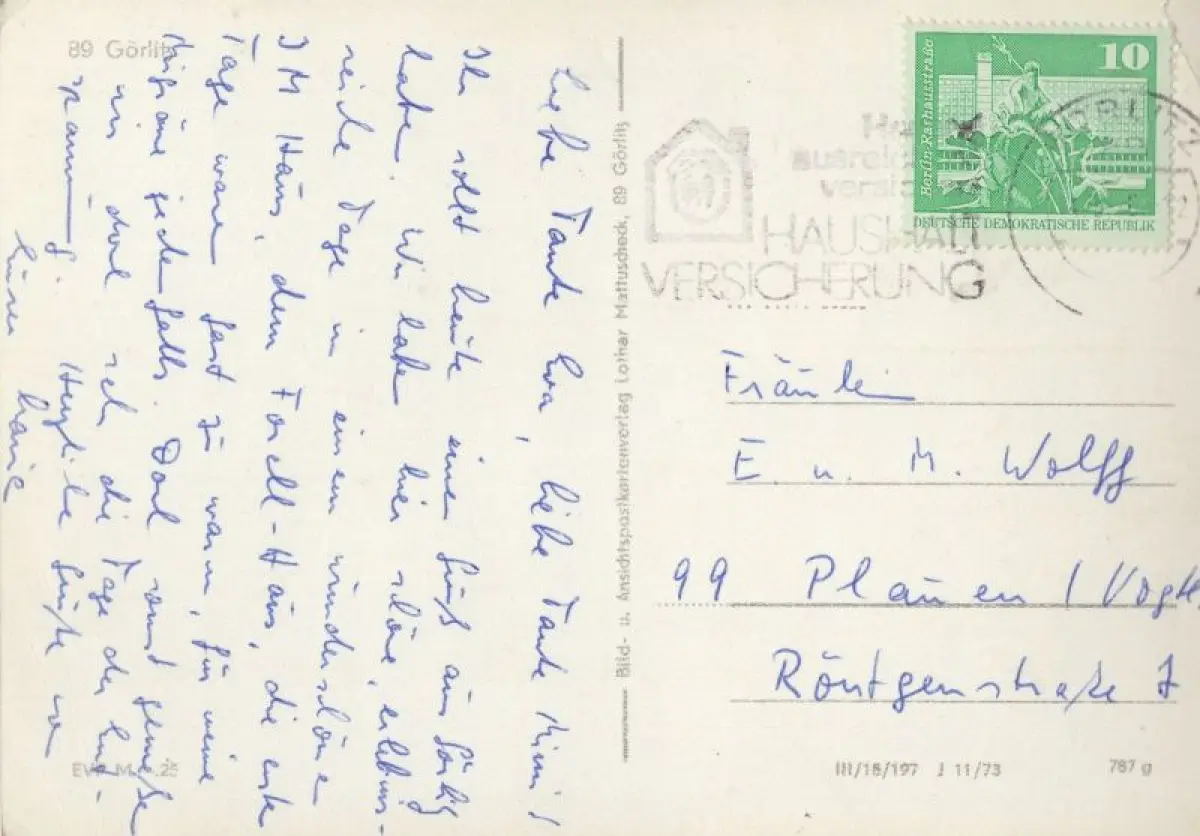 89 Görlitz
Liebe Tante Eva, liebe Tante Mimi!
Ihr sollt heute einen Gruß aus Görlitz
haben. Wir haben hier schöne, erlebnis-
reiche Tage in einem wunderschönen
IM Haus, dem Forell-Haus, die erste
Tage waren fast zu warm, für meine
Migräne jedenfalls. Doch sonst genieße
ich die Tage der Ent-
spannung. Herzliche Grüße von
Eurer
Bild- u. Ansichtspostkartenverlag Lothar Mattuscheck, 89 Görlitz
10
Berlin-Rathausstraße
DEUTSCHE DEMOKRATISCHE REPUBLIK
GÖRLITZ
HAUSHALT
VERSICHERUNG
Fräulein
E u. M. Wolff
99 Plauen / Vogtl
Röntgenstraße 7
III/18/197 J 11/73
787 g